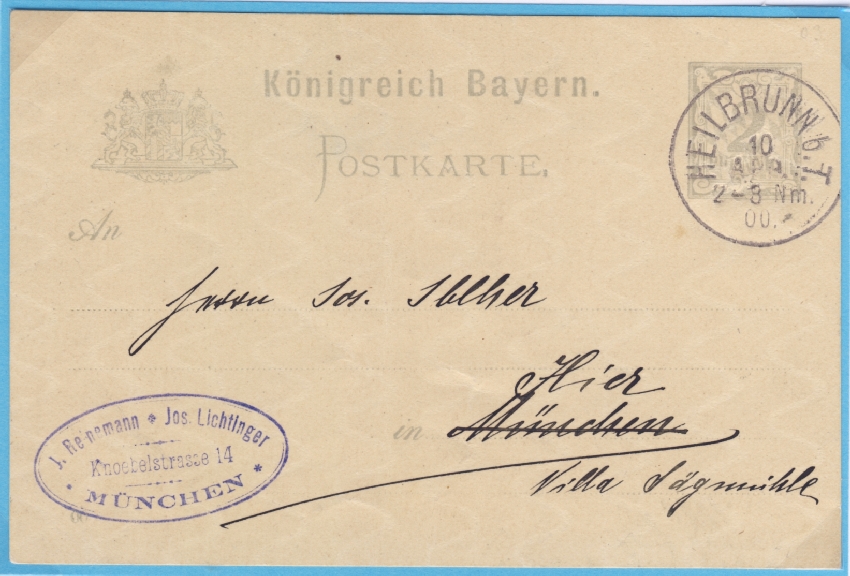 Königreich Bayern.
POSTKARTE.
HEILBRUNN b. T.
10
APR.
2-3 Nm.
00.
2
An
Herrn Jos.
Hier
in München
Villa Sägmühle
J. Reinemann * Jos. Lichtinger
Knoebelstrasse 14
* MÜNCHEN *